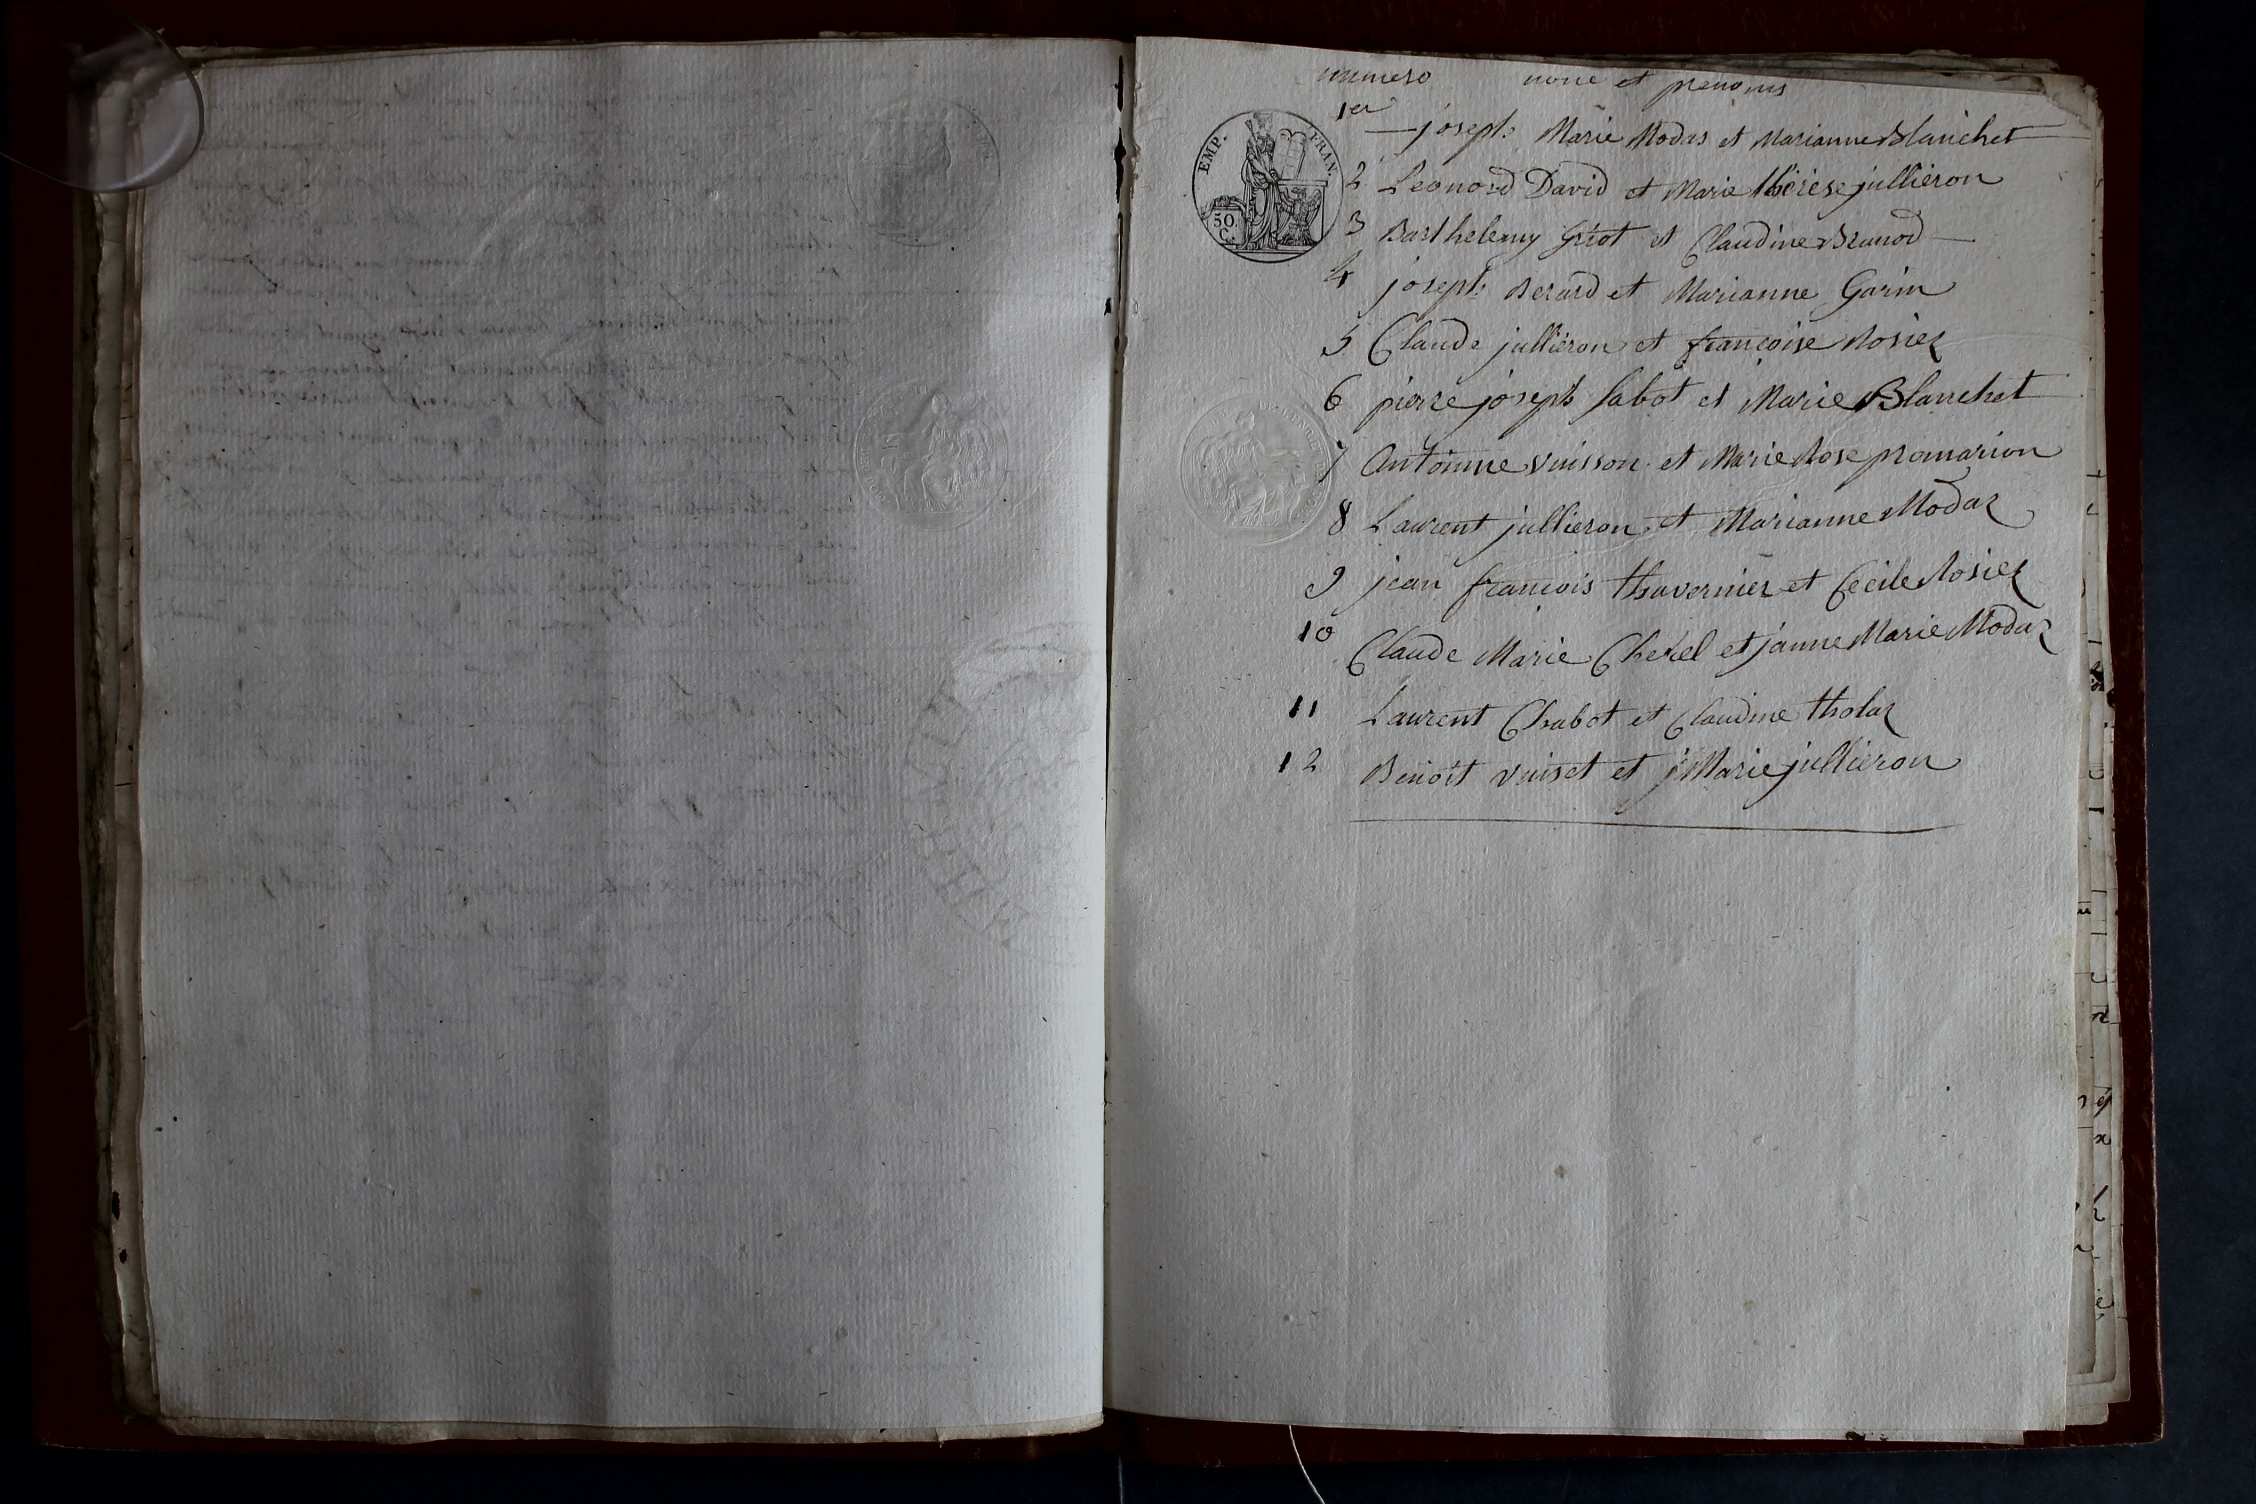 numero nom et prenoms
1er joseph Marie Modas et Marianne Blanchet
EMP. FRAN.
50 C.
2 Leonard David et Marie thérèse jullieron
3 Barthelemy Griot et Claudine Brunod
4 joseph Berard et Marianne Garin
5 Claude jullieron et françoise Rosier
6 pierre joseph Sabot et Marie Blanchet
7 Antoinne Vuisson et Marie Rose
8 Laurent jullieron et Marianne Modaz
9 jean françois thavernier et Cecile Rosier
10 Claude Marie et janne Marie Modaz
11 Laurent Chabot et Claudine tholaz
12 Benoit Vuiset et jne Marie jullieron